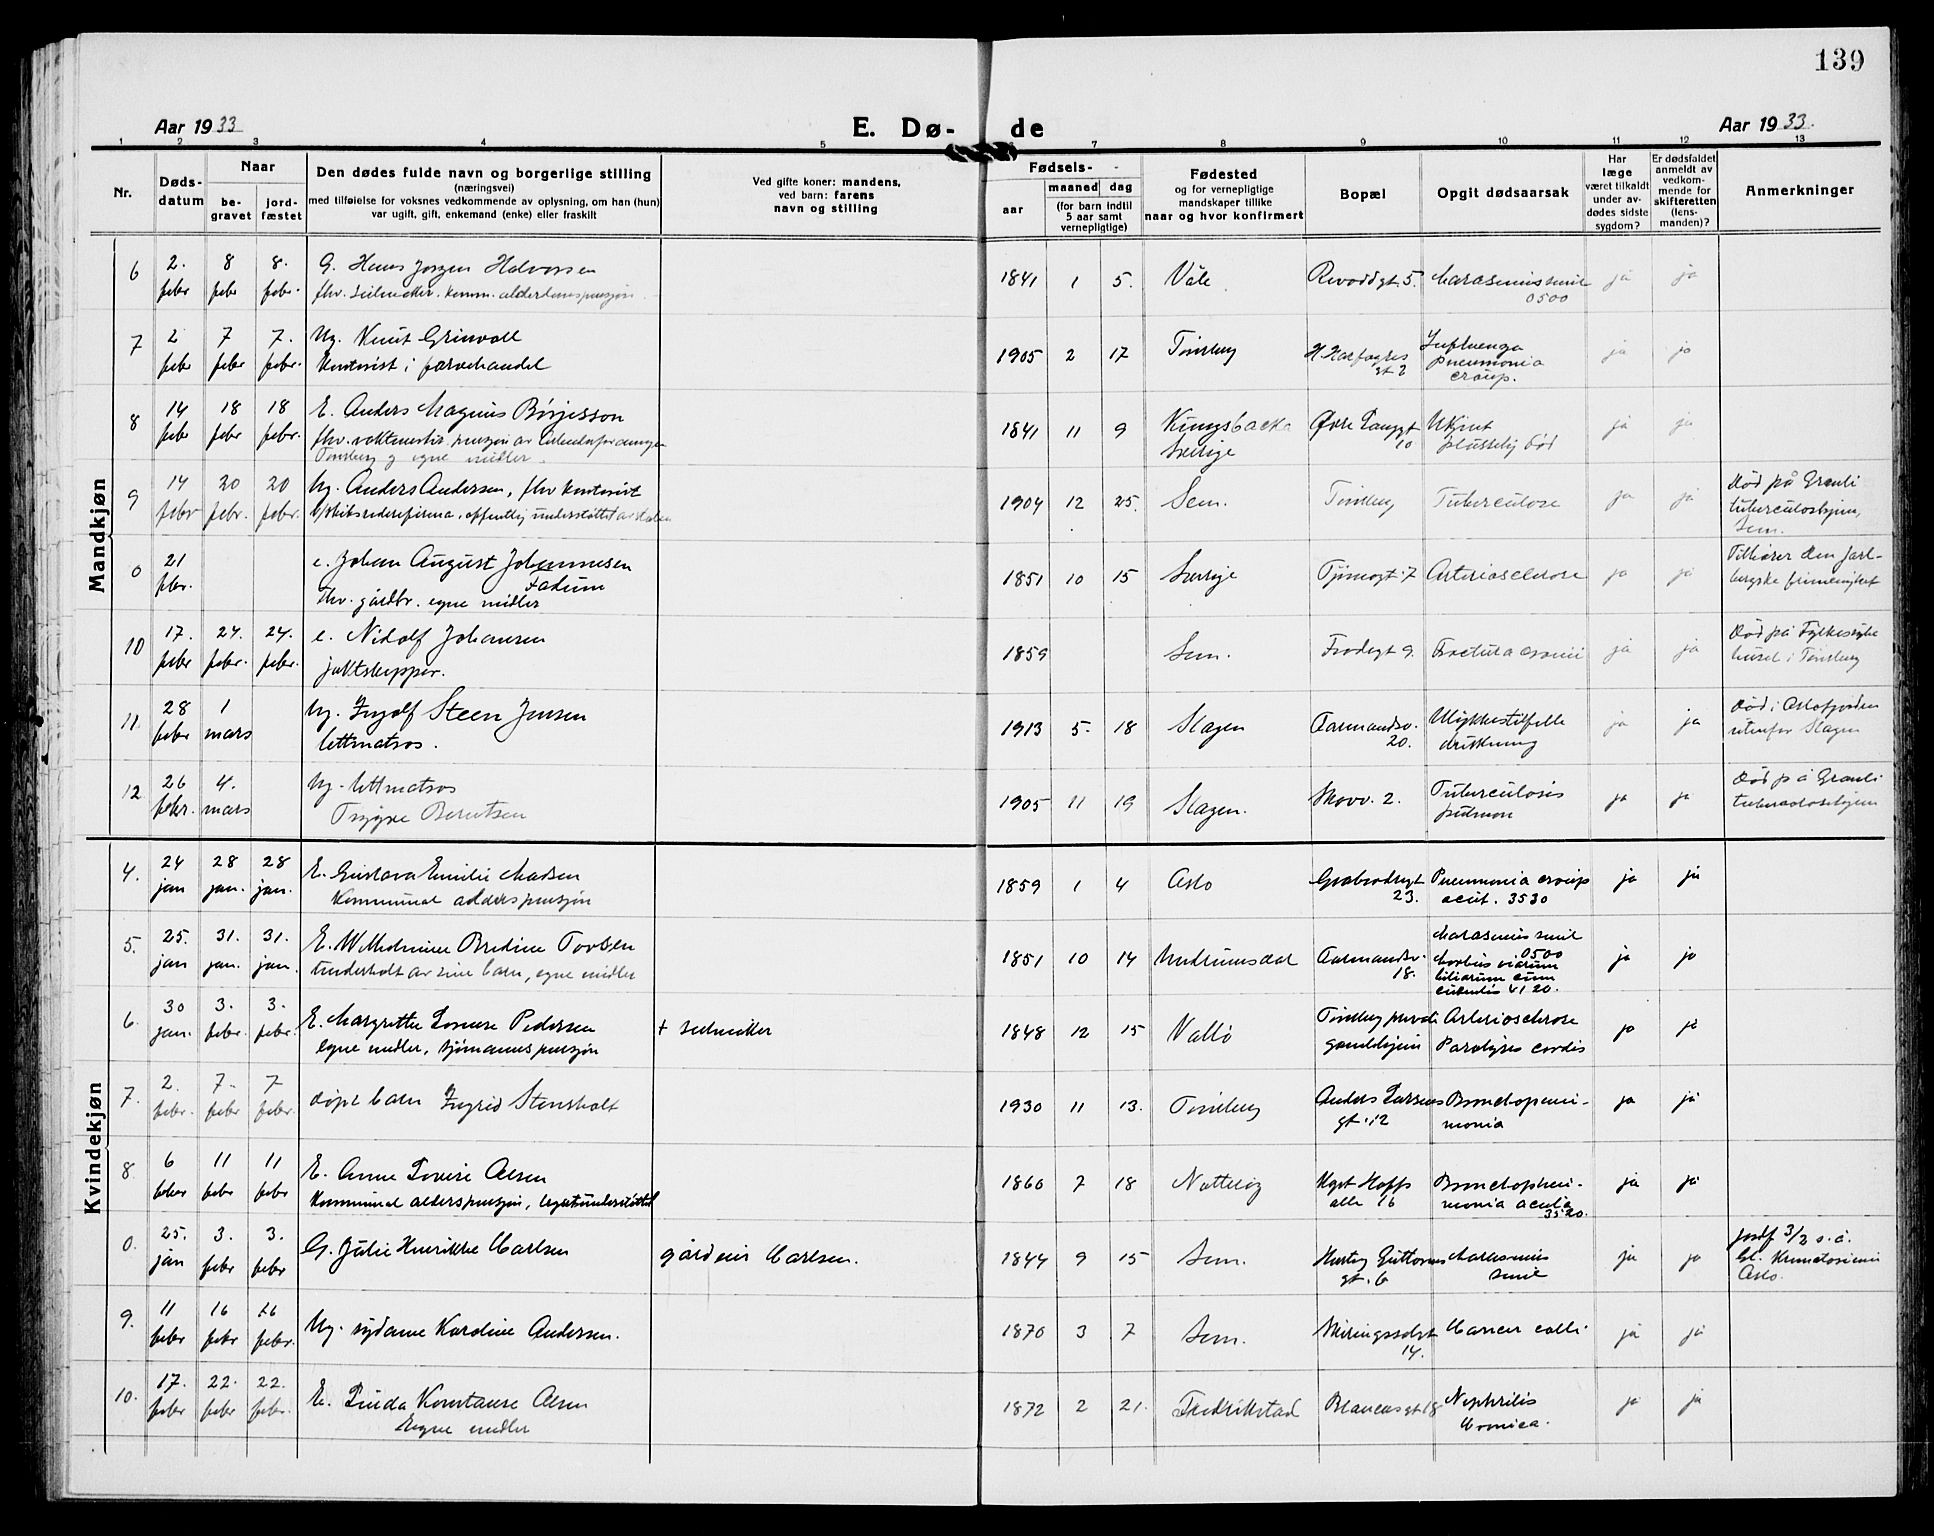 139
Aar 1933
E. Dø- de
Aar 1933.
1 2 3 4 5 7 8 9 10 11 12 13
Nr.
Døds-
datum
Naar
be-
gravet
jord-
fæstet
Den dødes fulde navn og borgerlige stilling
(næringsvei)
med tilføielse for voksnes vedkommende av oplysning, om han (hun)
var ugift, gift, enkemand (enke) eller fraskilt
Ved gifte koner: mandens,
ved barn: farens
navn og stilling
Fødsels-
aar
maaned dag
(for barn indtil
5 aar samt
vernepligtige)
Fødested
og for vernepligtige
mandskaper tillike
naar og hvor konfirmert
Bopæl
Opgit dødsaarsak
Har
læge
været tilkaldt
under av-
dødes sidste
sygdom?
Er dødsfaldet
anmeldt av
vedkom-
mende for
skifteretten
(lens-
manden)?
Anmerkninger
Mandkjøn
6 2. febr 8 febr 8. febr. G. Hans Jørgen Halvorsen
fhv. seilmaker. komm. alderdomspensjon.
1841 1 5. Våle Revoddgt. 5. Marasmus senil ja ja
0500
7 2 febr 7 febr 7. febr. Ug. Knut Grinvoll
Kontorist i farvehandel
1905 2 17 Tønsberg H. Harfagres gt 2 Influenza
pneumonia
croup. ja ja
8 14 febr 18 febr 18 febr. E. Anders Magnus Børjesson
fhv. vaktmester pensjon av arbeiderforeningen
Tønsberg og egne midler.
1841 11 9 Kungsbacka
Sverige Øvre Langgt 10 Ukjent
plusselig død ja ja
9 14 febr 20 febr. 20 febr. Ug. Anders Andersen, fhv kontorist
i skibsrederfirma, offentlig understøttet av staten
1904 12 25. Sem. Tønsberg Tuberculose ja ja Død på Granli
tuberculosehjem,
Sem.
0 21 febr. e. Johan August Johannesen
Fadum
fhv. gårdbr. egne midler
1851 10 15 Sverige Tjømegt. 7 Arteriosclerose ja ja Tilhører den Jarl-
bergske frimenighet
10 17. febr 24. febr. 24. febr. e. Nidolf Johansen
jaktskipper.
1859 Sem. Frodegt 9. Fractura cranii ja ja Død på Fylkessyke
huset i Tønsberg
11. 28 febr 1 mars Ug. Ingolf Steen Jensen
lettmatros.
1913 5. 18 Slagen Farmandsv. 20. Ulykkestilfelle
drukning ja ja Død i Oslofjorden
utenfor Slagen
12 26 febr. 4. mars Ug. lettmatros
Trygve Berntsen
1905 11 19 Slagen. Skovv. 2. Tuberculosis
pulmon ja ja Død på Granli
tuberculosehjem
Kvindekjøn
4. 24 jan 28 jan. 28 jan. E. Gustava Emilie Madsen
Kommunal alderspensjon
1859 1 4 Oslo Grabrødregt 23. Pneumonia croup
acut. 3530 ja ja
5. 25. jan 31. jan. 31. jan. E. Wilhelmine Bredine Tovsen
Underholdt av sine barn, egne midler
1851 10 14 Undrumsdal Farmandsv. 18. Marasmus senil
0500
Morbus viarum
biliarum cum 4120. ja ja
6. 30 jan. 3. febr. 3. febr. E. Margrethe Lovise Pedersen
Egne midler, sjømannspensjon
+ seilmaker
1848 12 15 Vallø Tønsberg private
gamlehjem Arteriosclerose
Paralyses cordis ja ja
7. 2. febr. 7. febr 7 febr. døpt barn Ingrid Stensholt
1930 11 13. Tønsberg Anders Larsens
gt. 12 Bronchopneu-
monia ja ja
8 6 febr 11 febr 11 febr E. Anne Lovise Olsen
Kommunal alderspensjon, legatunderstøttet
1860 7 18 Nøtterøy Kpt Hoffs
alle 16 Bronchopneu-
monia acuta
3520. ja ja
0. 25. jan 3. febr 3. febr G. Julie Henrikke Carlsen
gårdeier Carlsen.
1844 9 15 Sem. Hertug Guttorms
gt. 6 Marasmus
senil ja ja jordf 3/2 s. å.
Gl. Krematorium
Oslo.
9. 11 febr 16 febr 16 febr. Ug. sydame Karoline Andersen.
1870 3 7 Sem. 14. Cancer colli ja ja
10. 17. febr 22. febr 22. febr. E. Linda Konstanse Olsen
Egne midler
1872 2 21. Fredrikstad Blancasgt 18 Nephritis
Cronica. ja ja